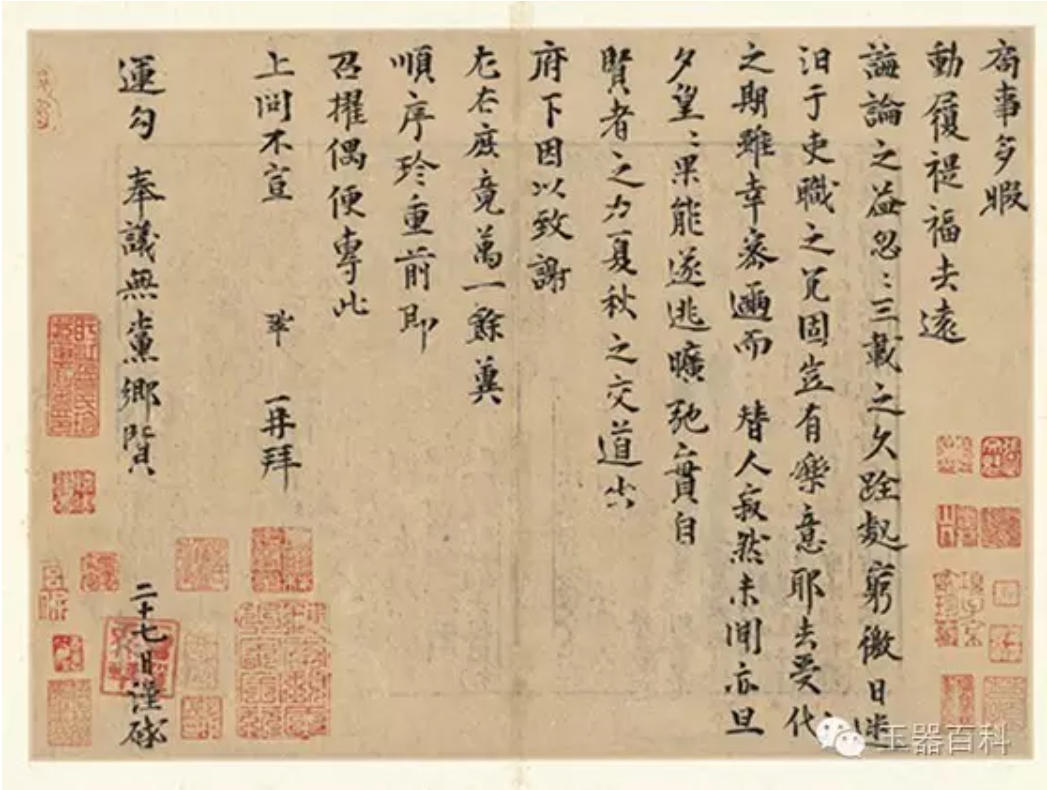 局事多暇
動履禔福去遠
誨論之益忽〻三載之久跧處窮徼日迷
汨于吏職之冗固豈有樂意耶去受代
之期雖幸密邇而 替人寂然未聞亦旦
夕望〻果能遂逃曠弛實自
賢者之力夏秋之交道出
府下因以致謝
左右庶竟萬一餘冀
順序珍重前即
召擢偶便專此
上問不宣 鞏 再拜
運勾 奉議無黨鄉賢 二十七日謹啟
玉器百科